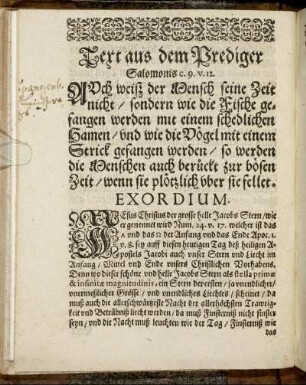 Text aus dem Prediger
Salomonis c. 9. v. 12.
AUch weiß der Mensch seine Zeit
nicht / sondern wie die Fische ge-
fangen werden mit einem schedlichen
Hamen / vnd wie die Vögel mit einem
Strick gefangen werden / so werden
die Menschen auch berückt zur bösen
Zeit / wenn sie plötzlich vber sie fellet.
EXORDIUM.
JEsus Christus der grosse helle Jacobs Stern / wie
er genennet wird Num. 24. v. 17. welcher ist das
A vnd das Ω der Anfang vnd das Ende Apoc. 1.
v. 8. sey auff diesen heutigen Tag deß heiligen A-
postels Jacobi auch vnser Stern vnd Liecht im
Anfang / Mittel vnd Ende vnsers Christlichen Vorhabens.
Denn wo dieser schöne vnd helle Jacobs Stern als stella primæ
& infinitæ magnitudinis, ein Stern der ersten / ja vnendlicher /
vnermeßlicher Grösse / vnd vnendliches Liechtes / scheinet / da
muß auch die allerschwärtzeste Nacht der allerhöchsten Trawrig-
keit vnd Betrübniß liecht werden / da muß Finsterniß nicht finster
seyn / vnd die Nacht muß leuchten wie der Tag / Finsterniß wie
das